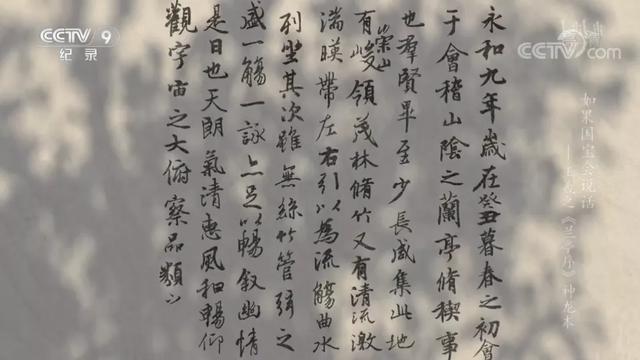 永和九年歲在癸丑暮春之初會
于會稽山陰之蘭亭脩稧事
也羣賢畢至少長咸集此地
有崇山峻領茂林脩竹又有清流激
湍暎帶左右引以為流觴曲水
列坐其次雖無絲竹管弦之
盛一觴一詠亦足以暢叙幽情
是日也天朗氣清惠風和暢仰
觀宇宙之大俯察品類之
CCTV 9
纪录
CCTV.com
如果国宝会说话
——王羲之《兰亭序》神龙本